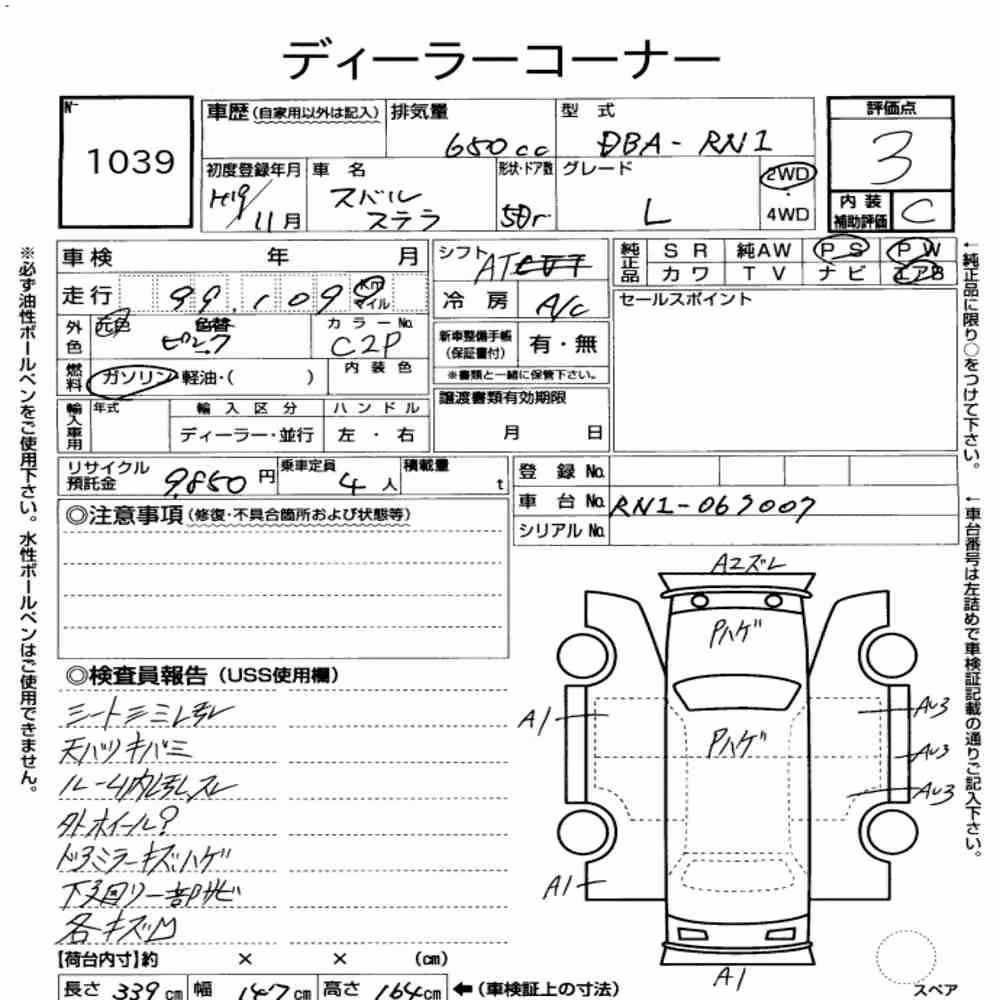 ディーラーコーナー
№
1039
車歴(自家用以外は記入)
排気量
650cc
型 式
DBA-RN1
評価点
3
初度登録年月
H19/11月
車 名
スバル
ステラ
形状・ドア数
5Dr
グレード
L
2WD
・
4WD
内 装
補助評価
C
車検 年 月
シフト
AT
純正品
SR 純AW PS PW
カワ TV ナビ エアB
走行 99,109 Km
マイル
冷 房
A/C
セールスポイント
外色
元色 色替
ピンク
カラーNo.
C2P
新車整備手帳
(保証書付)
有・無
※書類と一緒に保管下さい。
燃料
ガソリン・軽油・( )
内 装 色
輸入車用
年式
輸 入 区 分
ディーラー・並行
ハ ン ド ル
左 ・ 右
譲渡書類有効期限
月 日
リサイクル
預託金
9,850 円
乗車定員
4 人
積載量
t
登 録 No.
車 台 No. RN1-067007
シリアル No.
◎注意事項(修復・不具合箇所および状態等)
◎検査員報告(USS使用欄)
シートシミコゲ
天バリキバミ
ルーム内ヨゴレスレ
外ホイール?
ドアミラーキズハゲ
下廻り一部サビ
各キズM
【荷台内寸】約 × × (cm)
長さ 339 cm 幅 147 cm 高さ 164 cm
←(車検証上の寸法)
A2ズレ
Pハゲ
Pハゲ
A1
A1
A1
AU3
AU3
AU3
スペア
※必ず油性ボールペンをご使用下さい。水性ボールペンはご使用できません。
←純正品に限り○をつけて下さい。
←車台番号は左詰めで車検証記載の通りご記入下さい。